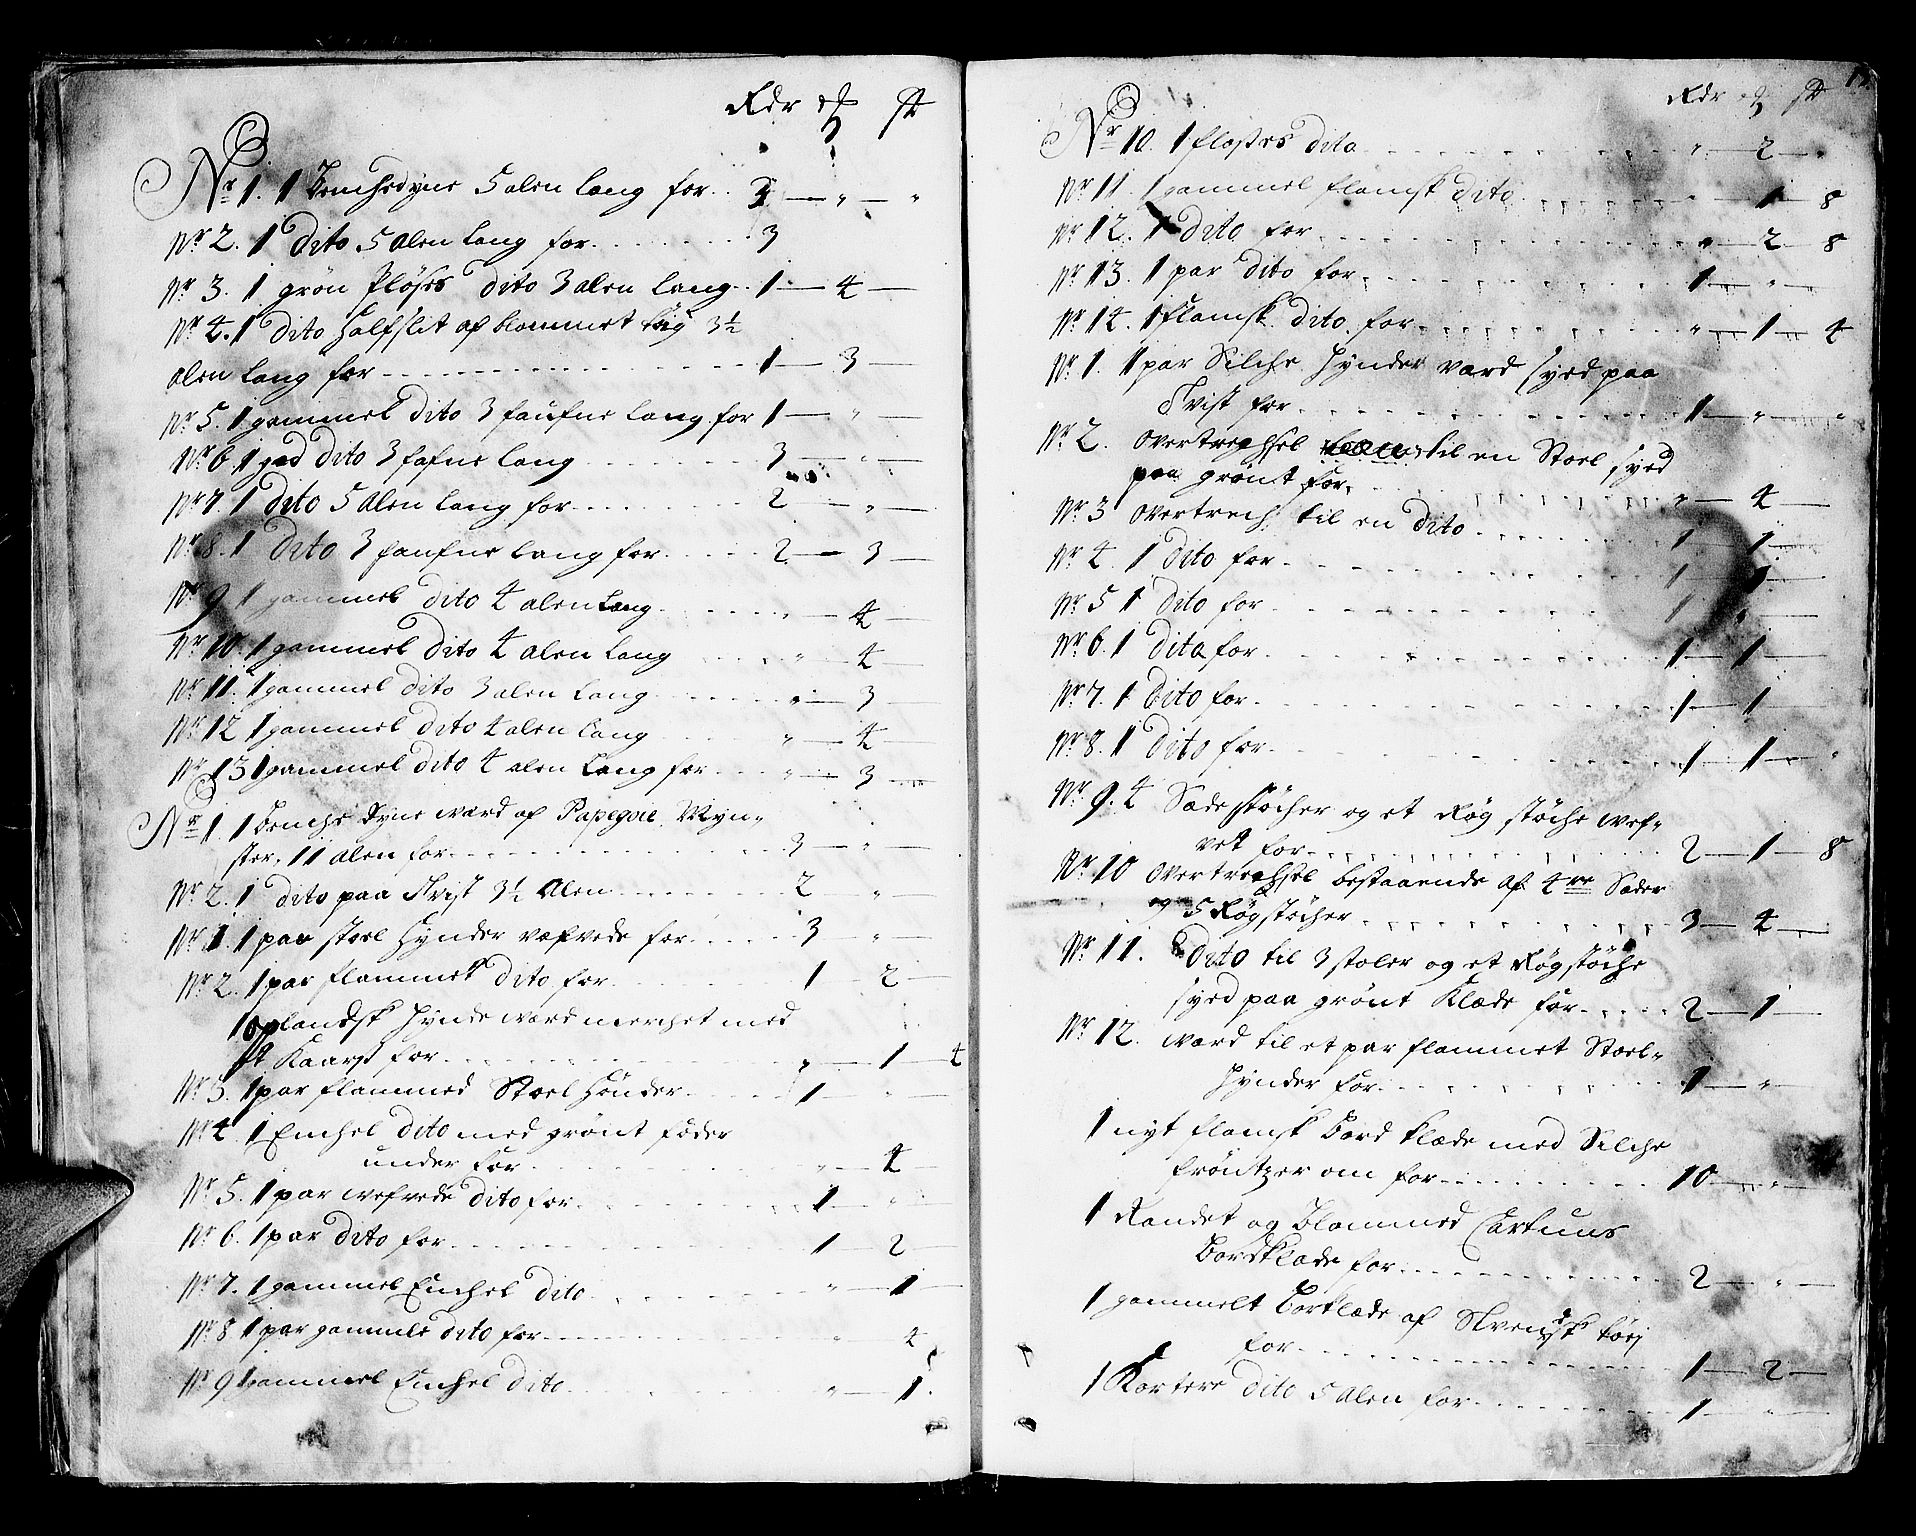 Rdr ꝶ sk
Nr 1. 1 Benchedyne 5 alen lang for .. 2 — „ — „
Nr 2. 1 Dito 5 alen lang for ........ 3
Nr 3. 1 grøn Pløses dito 3 alen lang .. 1 — 4 —
Nr 4. 1 dito Halfslit af blommet tøig 3½
alen lang for ................ 1 — 3 —
Nr 5. 1 gammel dito 3 faufne lang for 1 — „ —
Nr 6 1 god dito 3 fafne lang ....... 3 — „ —
Nr 7. 1 Dito 5 alen lang for ....... 2 — „ —
Nr 8. 1 Dito 3 faufne lang for ..... 2 — 3 —
Nr 9 1 gammel dito 4 alen lang ..... „ — 4 —
Nr 10. 1 gammel dito 4 alen lang .... „ — 4 —
Nr 11. 1 gammel dito 3 alen lang .... „ — 3 —
Nr 12 1 gammel dito 4 alen lang .... „ — 4 —
Nr 13 1 gammel dito 4 alen lang for ... „ — 3 —
Nr 1. 1 Benche Dyne ward af Papegoie Myn-
ster, 11 alen for ............ 3 — „ —
Nr 2. 1 dito paa Tvist 3½ Alen ....... 2 „ —
Nr 1. 1 par stoel Hynder vefvede for ..... 3 „ —
Nr 2. 1 par flammet dito for ........ 1 — 2 —
1 oplandsk Hynde ward merchet med
Kaarss for ............ „ — 1 — 4
Nr 3. 1 par flammed Stoel Hønder ..... 1 — „ —
Nr 4 1 Enchel dito med grønt føder
under for .............. „ — 4
Nr 5. 1 par wefvede dito for ........ 1 „
Nr 6. 1 par dito for ............ 1 — 2 —
Nr 7. 1 gammel Enchel dito ........ „ — 1 —
Nr 8 1 par gammele dito for ........ „ 4
Nr 9 1 gammel Enchel dito ........ „ — 1.
Rdr ꝶ sk
Nr 10. 1 fløses dito ............ „ — 2 — „
Nr 11. 1 gammel flamsk dito ....... — 1 — 8
Nr 12. 1 Dito for ............ „ — 2 — 8
Nr 13. 1 par dito for ........... 1 — „ —
Nr 14. 1 flamsk dito for ......... „ — 1 — 4
Nr 1. 1 par Silche Hynder vard syed paa
Tvist for ............ 1 — „ — „
Nr 2. overtrechsel til en Stoel syed
paa grønt for. ........... „ — 4 —
Nr 3 overtrech til en dito ....... 1 — 1 —
Nr 4. 1 dito for ............ 1 — 1 —
Nr 5 1 Dito for ............ 1 „ —
Nr 6. 1 dito for ............ 1 — 1 —
Nr 7. 1 Dito for ............ 1 — 1 —
Nr 8. 1 Dito for ............ 1 — 1 — „
Nr 9. 4 Sæde støcher og et Røg støche wef-
vet for ............ 2 — 1 — 8
Nr 10 overtrechsel bestaaende af 4re Sæder
og 5 Røgstøcher ............ 3 — 4 —
Nr 11. Dito til 3 stoler og et Røgstøche
syed paa grønt Klæde for ..... 2 — 1 —
Nr 12. ward til et par flammet Stoel-
Hynder for ............ 1 — „
1 nyt flamsk Bord klæde med Silche
frøntzer om for .......... 10 — „ —
1 Randet og Blommed Cartuns
Bordklæde for ........... 2 — „ —
1 gammelt Borklæde af Svendsk tøij
for ............... 1 — 2 —
1 Kortere dito 5 Alen for ......... 1 — „ —